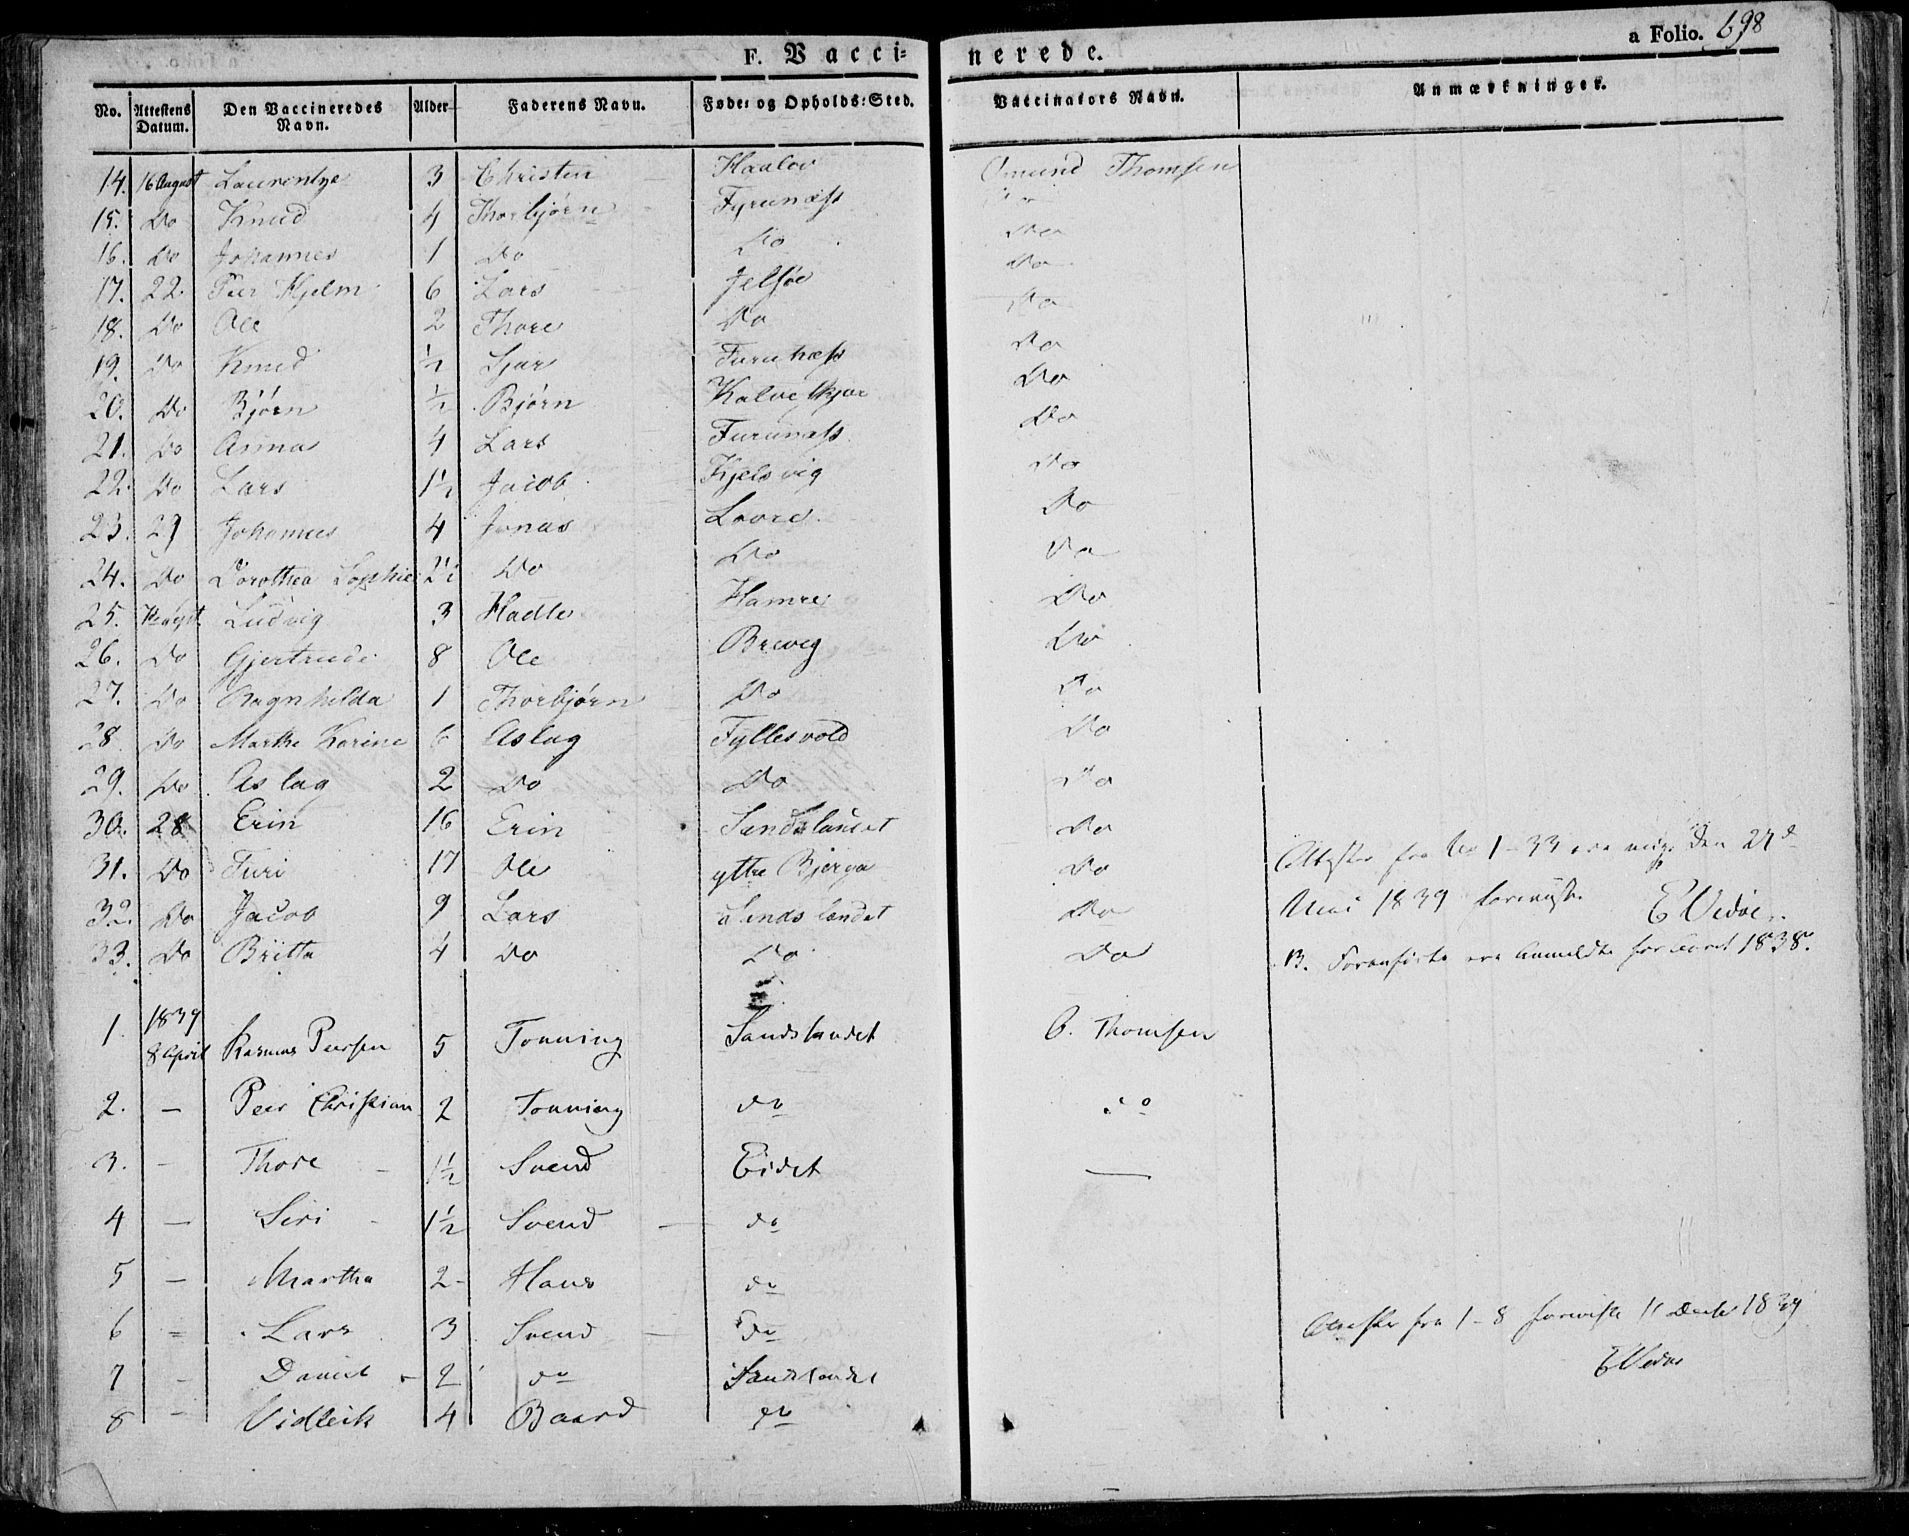 a Folio. 698
F. Vacci= nerede.
No. Attestens Datum. Den Vaccineredes Navn. Alder Faderens Navn. Føde= og Opholds=Sted. Vaccinators Navn. Anmærkninger.
14. 16 August 3 Christen Omund Thomsen
15. Do Knud 4 Thorbjørn Fyrunæss
16. Do Johannes 1 Do Do Do
17. 22 Peer Hjelm 6 Lars Jelsøe Do
18. Do Ole 2 Thore Do Do
19. Do Knud ½ Furunæss Do
20. Do Bjørn ½ Bjørn Do
21. Do Anna 4 Lars Furunæss Do
22. Do Lars 1½ Jacob Kjelsvig Do
23. 29 Johannes 4 Jonas Lovre Do
24. Do Dorothea Sophie 2½ Do Do Do
25. Ludvig 3 Hadle Hamre Do
26. Do Gjertrude 8 Ole Brevig Do
27. Do Ragnhilda 1 Thorbjørn Do Do
28 Do Marthe Karine 6 Aslag Fyllesvold Do
29. Do Aslag 2 Do Do Do
30. 28 Erin 16 Erin Sandslandet Do
31. Do Turi 17 Ole ytre Bjerga Do Attester fra No 1-33 ere mig den 27d
32. Do Jacob 9 Lars Sandslandet Do Mai 1839 foreviste E Vidøe.
33. Do Britta 4 Do Do Do Foranførte ere anmeldte for Aaret 1838.
1. 1839 8 April Rasmus Peersen 5 Tonning Sandslandet O. Thomsen
2. — Peer Christian 2 Tonning do do
3. - Thore - 1½ Svend Eidet —
4 — Siri - 1½ Svend — do
5 — Martha 2 - Hans do
6 = Lars 3 Svend — do Attester fra 1-8 foreviste 11 Decbr 1839
7 - Daniel - 2 do Sandslandet E Vidøe
8 - Vidleik 4 Baard do